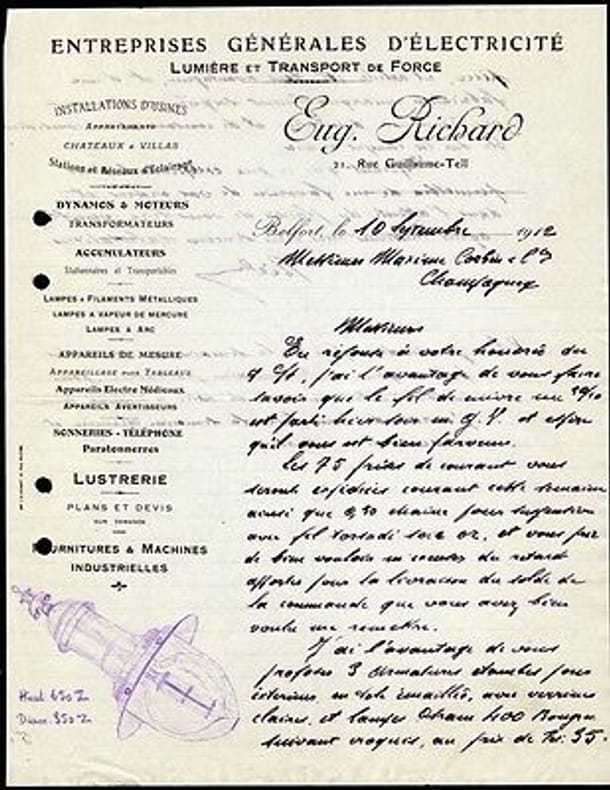 ENTREPRISES GÉNÉRALES D'ÉLECTRICITÉ
LUMIÈRE ET TRANSPORT DE FORCE
INSTALLATIONS D'USINES
APPARTEMENTS
CHATEAUX & VILLAS
Stations et Réseaux d'Eclairage
DYNAMOS & MOTEURS
TRANSFORMATEURS
ACCUMULATEURS
Stationnaires et Transportables
LAMPES A FILAMENTS MÉTALLIQUES
LAMPES A VAPEUR DE MERCURE
LAMPES A ARC
APPAREILS DE MESURE
APPAREILLAGE POUR TABLEAUX
Appareils Electro Médicaux
APPAREILS AVERTISSEURS
SONNERIES - TÉLÉPHONE
Paratonnerres
LUSTRERIE
PLANS ET DEVIS
SUR DEMANDE
FOURNITURES & MACHINES
INDUSTRIELLES
Eug. Richard
21, Rue Guillaume-Tell
Belfort, le 10 1912
Messieurs Maxime Corbin & Cie
Messieurs
En réponse à votre honorée du
9 Ct, j'ai l'avantage de vous faire
savoir que le fil de cuivre
est parti hier soir en G.V. et espère
qu'il vous est bien parvenu.
Les 75 prises de courant vous
seront expédiées courant cette semaine
ainsi que chaine pour suspension
avec fil torsadé soie or, et vous prie
de bien vouloir du retard
apporté pour la livraison du solde de
la commande que vous avez bien
voulu me remettre.
J'ai l'avantage de vous
proposer 3 armatures étanches pour
extérieur, en tôle émaillée, avec verrines
claires, et lampes Osram 400 Bougies
suivant croquis, au prix de Frs: 35.
Haut 650